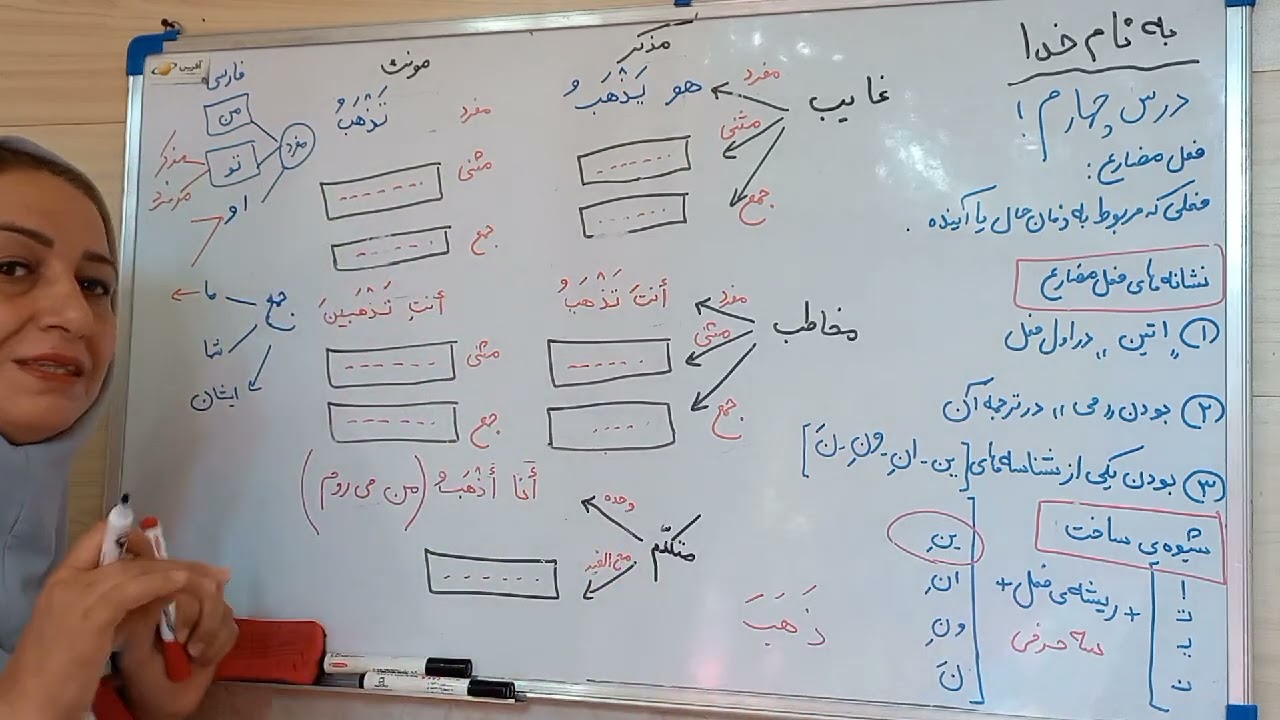 به نام خدا
درس چهارم :
فعل مضارع :
فعلی که مربوط به زمان حال یا آینده .
نشانه های فعل مضارع
① "اتین" در اول فعل
② بودن «می» در ترجمه آن
③ بودن یکی از شناسه های [ین - انِ - ونِ - نَ]
شیوه ی ساخت
ا
ت
یـ
ن
+ ریشه ی فعل +
سه حرفی
ینِ
انِ
ونِ
نَ
ذَهَبَ
مذکر
مونث
غایب
مفرد
هو یَذْهَبُ
مثنی
جمع
مفرد
تَذْهَبُ
مثنی
جمع
مخاطب
مفرد
أنتَ تَذْهَبُ
مثنی
جمع
أنتِ تَذْهَبینَ
مثنی
جمع
متکلّم
وحده
أنا أَذْهَبُ (من می روم)
مع الغیر
فارسی
مفرد
من
تو
او
مذکر
جمع
ما
شما
ایشان
آفرین